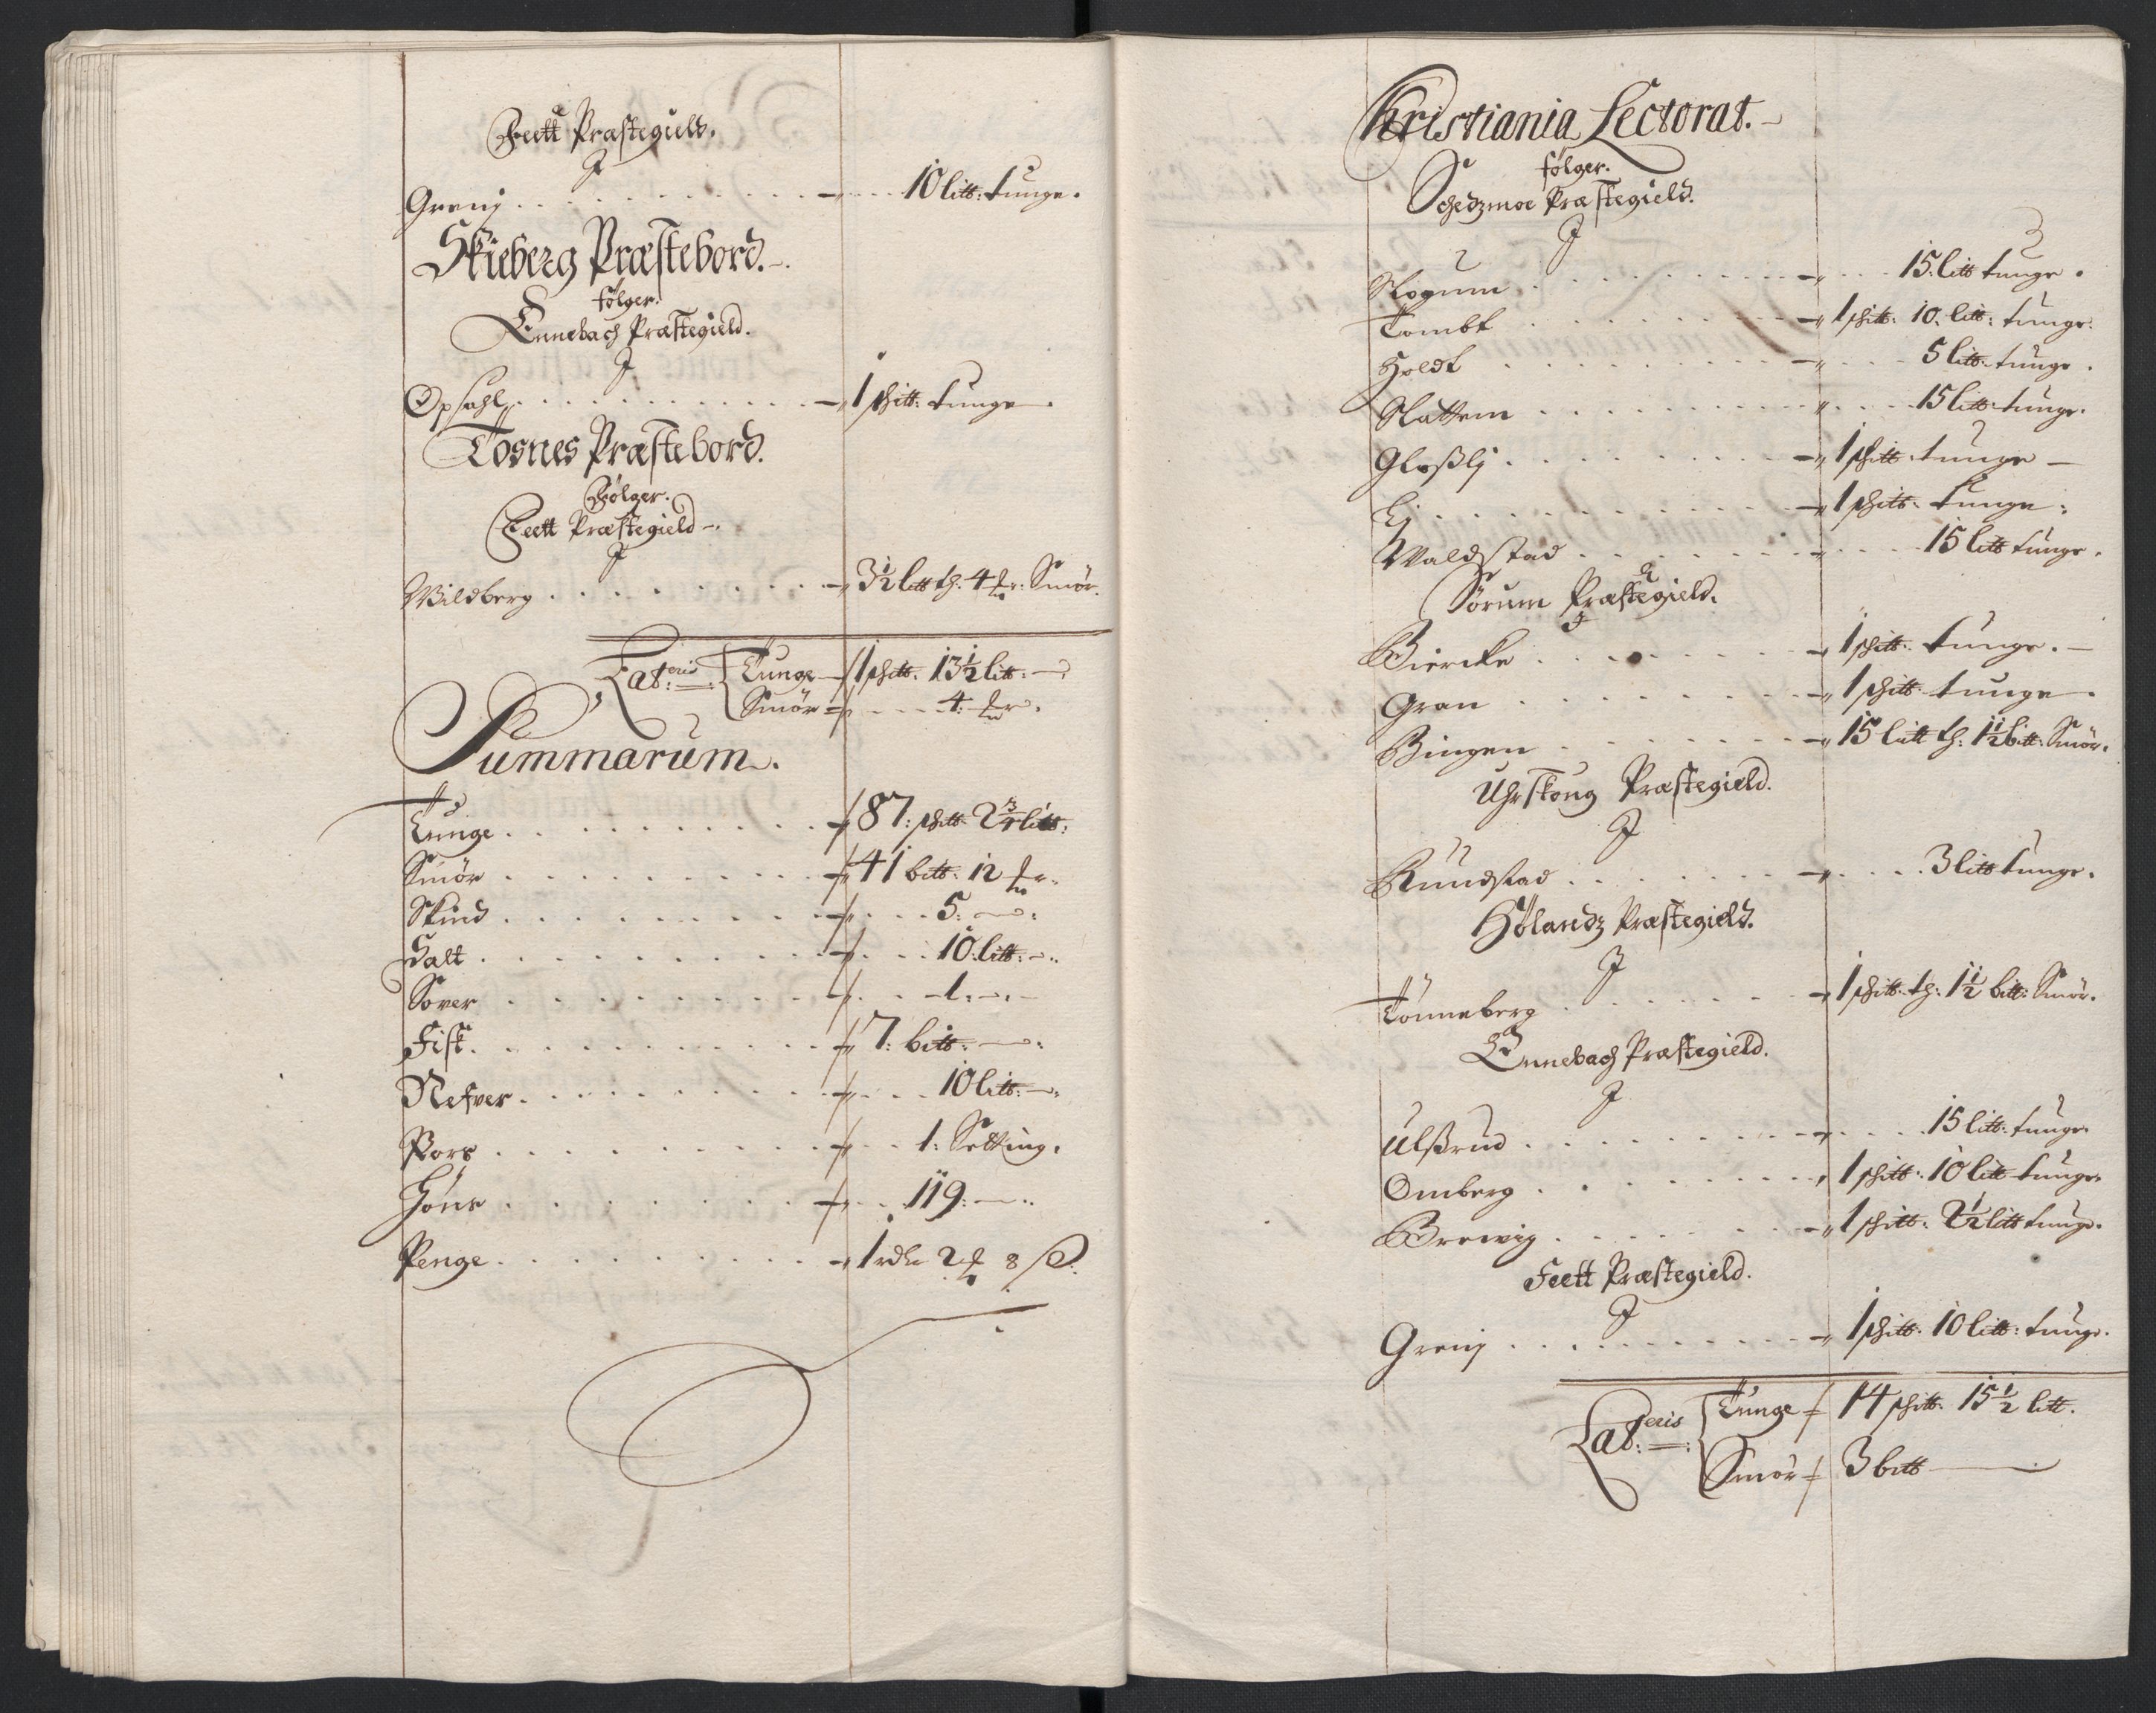 Feett Præstegield.
J
Grenj . . . . . . . . . . 10 litt: tunge.
Skieberg Præstebord.
følger.
Ennebach Præstegield.
J
Opsahl . . . . . . . . . . 1 schtt: tunge.
Tosnes Præstebord.
Følger.
Feett Præstegield.
J
Wildberg . . . . . . . . 3½ litt th: 4 Smör.
Lateris Tunge 1 schtt. 13½ litt:
Smör 4:
Summarum.
Tunge . . . . . . . . . . 87: schtt 2¾ litt:
Smör . . . . . . . . . . 41 bitt: 12
Skind . . . . . . . . . . 5:
Salt . . . . . . . . . . 10: litt:
Sover . . . . . . . . . . 1:
Fisk . . . . . . . . . . 7: bitt:
Nefver . . . . . . . . . . 10 litt:
Pors . . . . . . . . . . 1: Setting.
Höns . . . . . . . . . . 119:
Penge . . . . . . . . . . 1 rdr 2 8 ß
Christiania Lectorat.
følger.
Schedzmoe Præstegield.
J
Slogum . . . . . . . . 15: litt tunge.
Tombt . . . . . . . . 1 schtt: 10. litt: tunge.
Holdt . . . . . . . . 5 litt: tunge.
Slattem . . . . . . . . 15 litt tunge.
Gloßlj . . . . . . . . 1 schtt tunge
Ej . . . . . . . . 1 schtt. tunge:
Waldstad . . . . . . . . 15 litt tunge.
Sörum Præstegield.
J
Biercke . . . . . . . . 1 schtt. tunge.
Gran . . . . . . . . 1 schtt. tunge.
Bingen . . . . . . . . 15 litt th: 1½ bitt: Smör.
Uhrskoug Præstegield.
J
Rundstad . . . . . . . . 3 litt tunge.
Hölandz Præstegield.
J
Tönneberg . . . . . . . . 1 schtt. th: 1½ bitt: Smör.
Ennebach Præstegield.
J
Ulßrud . . . . . . . . 15 litt: tunge
Omberg . . . . . . . . 1 schtt: 10 litt tunge.
Brewig . . . . . . . . 1 schtt: 2½ litt tunge.
Feett Præstegield.
J
Grenj . . . . . . . . 1 schtt. 10 litt: tunge.
Lateris Tunge 14 schtt. 15½ litt.
Smör 3 bitt